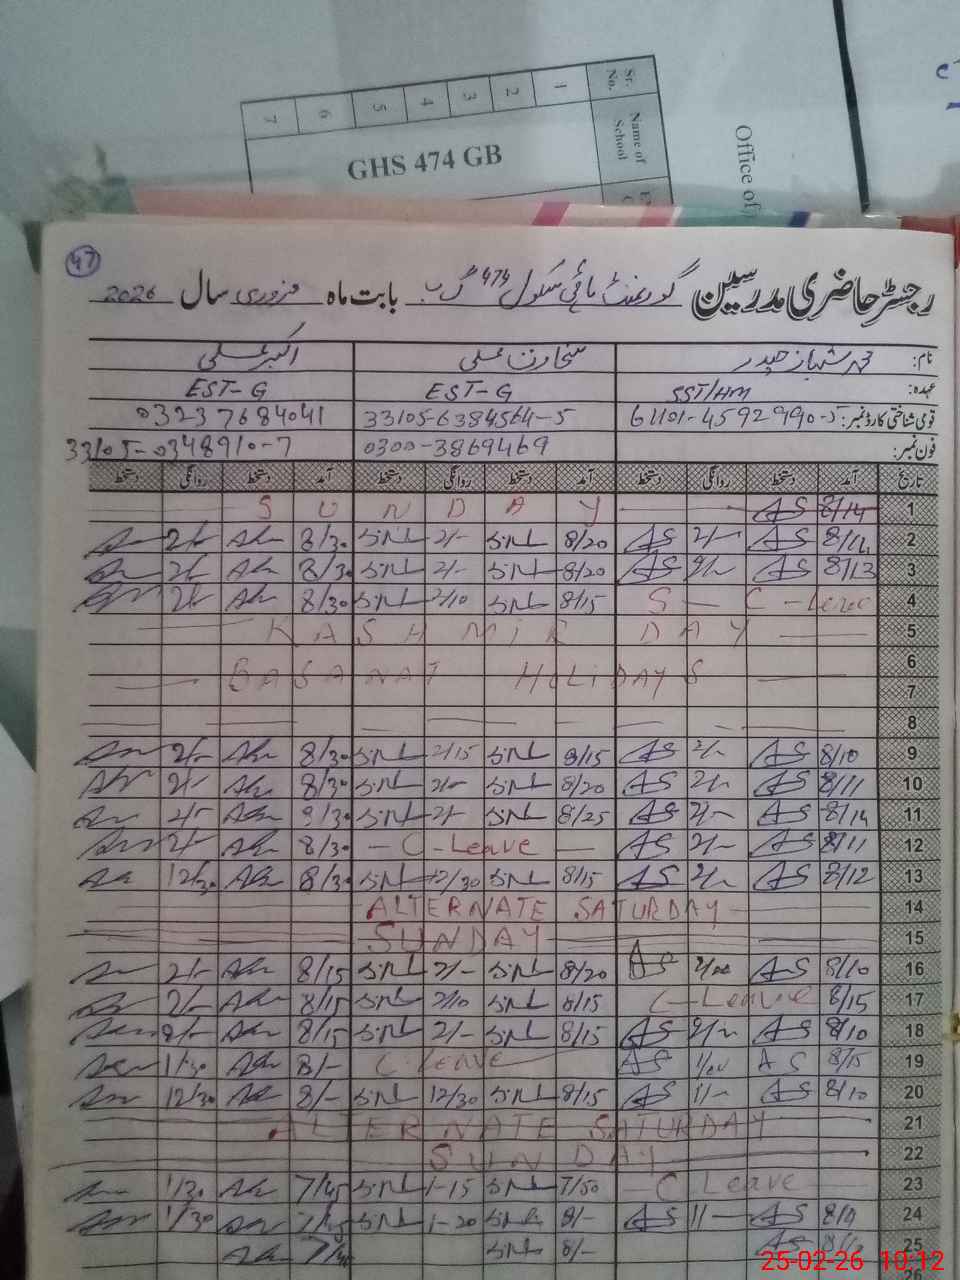 Sr. No. 1 2 3 4 5 6 7
Name of School GHS 474 GB
Office of
47
رجسٹر حاضری مدرسین گورنمنٹ ہائی سکول 474 گ ب بابت ماہ فروری سال 2026
نام: محمد شہباز حیدر سخاوت علی اکبر علی
عہدہ: SST/HM EST-G EST-G
قومی شناختی کارڈ نمبر: 61101-4592990-5 33105-6384564-5 03237684041
فون نمبر: 0300-3869469 33105-0348910-7
تاریخ آمد دستخط روانگی دستخط آمد دستخط روانگی دستخط آمد دستخط روانگی دستخط
1 8/14 AS SUNDAY
2 8/12 AS 2/- AS 8/20 2/- 8/30 2/-
3 8/13 AS 2/- AS 8/20 2/- 8/30 2/-
4 S - C-Leave 8/15 2/10 8/30 2/-
5 KASHMIR DAY
6 BASANAT HOLIDAYS
7
8
9 8/10 AS 2/- AS 8/15 2/15 8/30 2/-
10 8/11 AS 2/- AS 8/20 2/- 8/30 2/-
11 8/14 AS 2/- AS 8/25 2/- 8/30 2/-
12 8/11 AS 2/- AS - C-Leave - 8/30 2/-
13 8/12 AS 2/- AS 8/15 12/30 8/30 12/30
14 ALTERNATE SATURDAY
15 SUNDAY
16 8/10 AS 2/00 AS 8/20 2/- 8/15 2/-
17 8/15 C-Leave 8/15 2/10 8/15 2/-
18 8/10 AS 2/- AS 8/15 2/- 8/15 2/-
19 8/15 AS AS C-Leave 8/- 1/30
20 8/10 AS 11- AS 8/15 12/30 8/- 12/30
21 ALTERNATE SATURDAY
22 SUNDAY
23 C Leave 7/50 1-15 7/45 1/30
24 AS 11- AS 8/- 1-20 7/45 1/30
25 AS 8/- 7/40
26
25-02-26 10:12